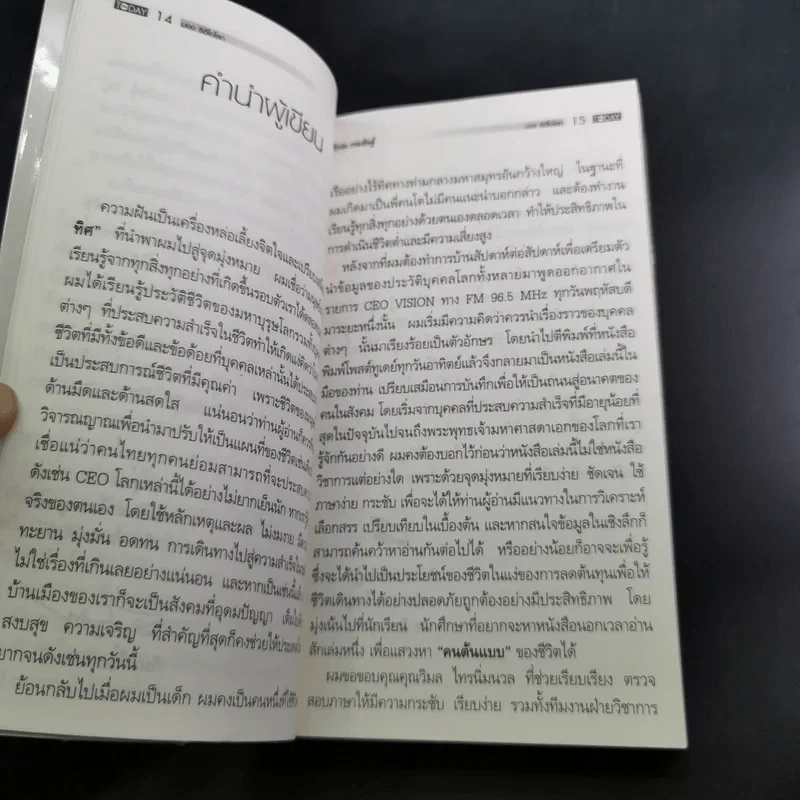 TODAY 14
คำนำผู้เขียน
ความฝันเป็นเครื่องหล่อเลี้ยงจิตใจและเปรียบ
ทิศ" ที่นำพาผมไปสู่จุดมุ่งหมาย ผมเชื่อว่า
เรียนรู้จากทุกสิ่งทุกอย่างที่เกิดขึ้นรอบตัวเราได้
ผมได้เรียนรู้ประวัติชีวิตของมหาบุรุษโลกรวมทั้ง
ต่างๆ ที่ประสบความสำเร็จในชีวิตทำให้เกิดแง่คิดว่า
ชีวิตที่มีทั้งข้อดีและข้อด้อยที่บุคคลเหล่านั้นได้
เป็นประสบการณ์ชีวิตที่มีคุณค่า เพราะชีวิตของ
ด้านมืดและด้านสดใส แน่นอนว่าท่านผู้อ่าน
วิจารณญาณเพื่อนำมาปรับให้เป็นแผนที่ของชีวิต
เชื่อแน่ว่าคนไทยทุกคนย่อมสามารถที่จะประสบ
ดังเช่น CEO โลกเหล่านี้ได้อย่างไม่ยากเย็นนัก
จริงของตนเอง โดยใช้หลักเหตุและผล ไม่งมงาย
ทะยาน มุ่งมั่น อดทน การเดินทางไปสู่ความสำเร็จ
ไม่ใช่เรื่องที่เกินเลยอย่างแน่นอน และหากเป็นเช่นนั้น
บ้านเมืองของเราก็จะเป็นสังคมที่อุดมปัญญา
สงบสุข ความเจริญ ที่สำคัญที่สุดก็คงช่วยให้
ยากจนดังเช่นทุกวันนี้
ย้อนกลับไปเมื่อผมเป็นเด็ก ผมคงเป็นคนหนึ่งที่
15 TODAY
เรืออย่างไร้ทิศทางท่ามกลางมหาสมุทรอันกว้างใหญ่ ในฐานะที่
ผมเกิดมาเป็นพี่คนโตไม่มีคนแนะนำบอกกล่าว และต้องทำงาน
เรียนรู้ทุกสิ่งทุกอย่างด้วยตนเองตลอดเวลา ทำให้ประสิทธิภาพใน
การดำเนินชีวิตต่ำและมีความเสี่ยงสูง
หลังจากที่ผมต้องทำการบ้านสัปดาห์ต่อสัปดาห์เพื่อเตรียมตัว
นำข้อมูลของประวัติบุคคลโลกทั้งหลายมาพูดออกอากาศใน
รายการ CEO VISION ทาง FM 96.5 MHz ทุกวันพฤหัสบดี
มาระยะหนึ่งนั้น ผมเริ่มมีความคิดว่าควรนำเรื่องราวของบุคคล
ต่างๆ นั้นมาเรียงร้อยเป็นตัวอักษร โดยนำไปตีพิมพ์ที่หนังสือ
พิมพ์โพสต์ทูเดย์ทุกวันอาทิตย์แล้วจึงกลายมาเป็นหนังสือเล่มนี้ใน
มือของท่าน เปรียบเสมือนการบันทึกเพื่อให้เป็นถนนสู่อนาคตของ
คนในสังคม โดยเริ่มจากบุคคลที่ประสบความสำเร็จที่มีอายุน้อยที่
สุดในปัจจุบันไปจนถึงพระพุทธเจ้ามหาศาสดาเอกของโลกที่เรา
รู้จักกันอย่างดี ผมคงต้องบอกไว้ก่อนว่าหนังสือเล่มนี้ไม่ใช่หนังสือ
วิชาการแต่อย่างใด เพราะด้วยจุดมุ่งหมายที่เรียบง่าย ชัดเจน ใช้
ภาษาง่าย กระชับ เพื่อจะได้ให้ท่านผู้อ่านมีแนวทางในการวิเคราะห์
เลือกสรร เปรียบเทียบในเบื้องต้น และหากสนใจข้อมูลในเชิงลึกก็
สามารถค้นคว้าหาอ่านกันต่อไปได้ หรืออย่างน้อยก็อาจจะเพื่อรู้
ซึ่งจะได้นำไปเป็นประโยชน์ของชีวิตในแง่ของการลดต้นทุนเพื่อให้
ชีวิตเดินทางได้อย่างปลอดภัยถูกต้องอย่างมีประสิทธิภาพ โดย
มุ่งเน้นไปที่นักเรียน นักศึกษาที่อยากจะหาหนังสือนอกเวลาอ่าน
สักเล่มหนึ่ง เพื่อแสวงหา "คนต้นแบบ" ของชีวิตได้
ผมขอขอบคุณคุณวิมล ไทรนิ่มนวล ที่ช่วยเรียบเรียง ตรวจ
สอบภาษาให้มีความกระชับ เรียบง่าย รวมทั้งทีมงานฝ่ายวิชาการ